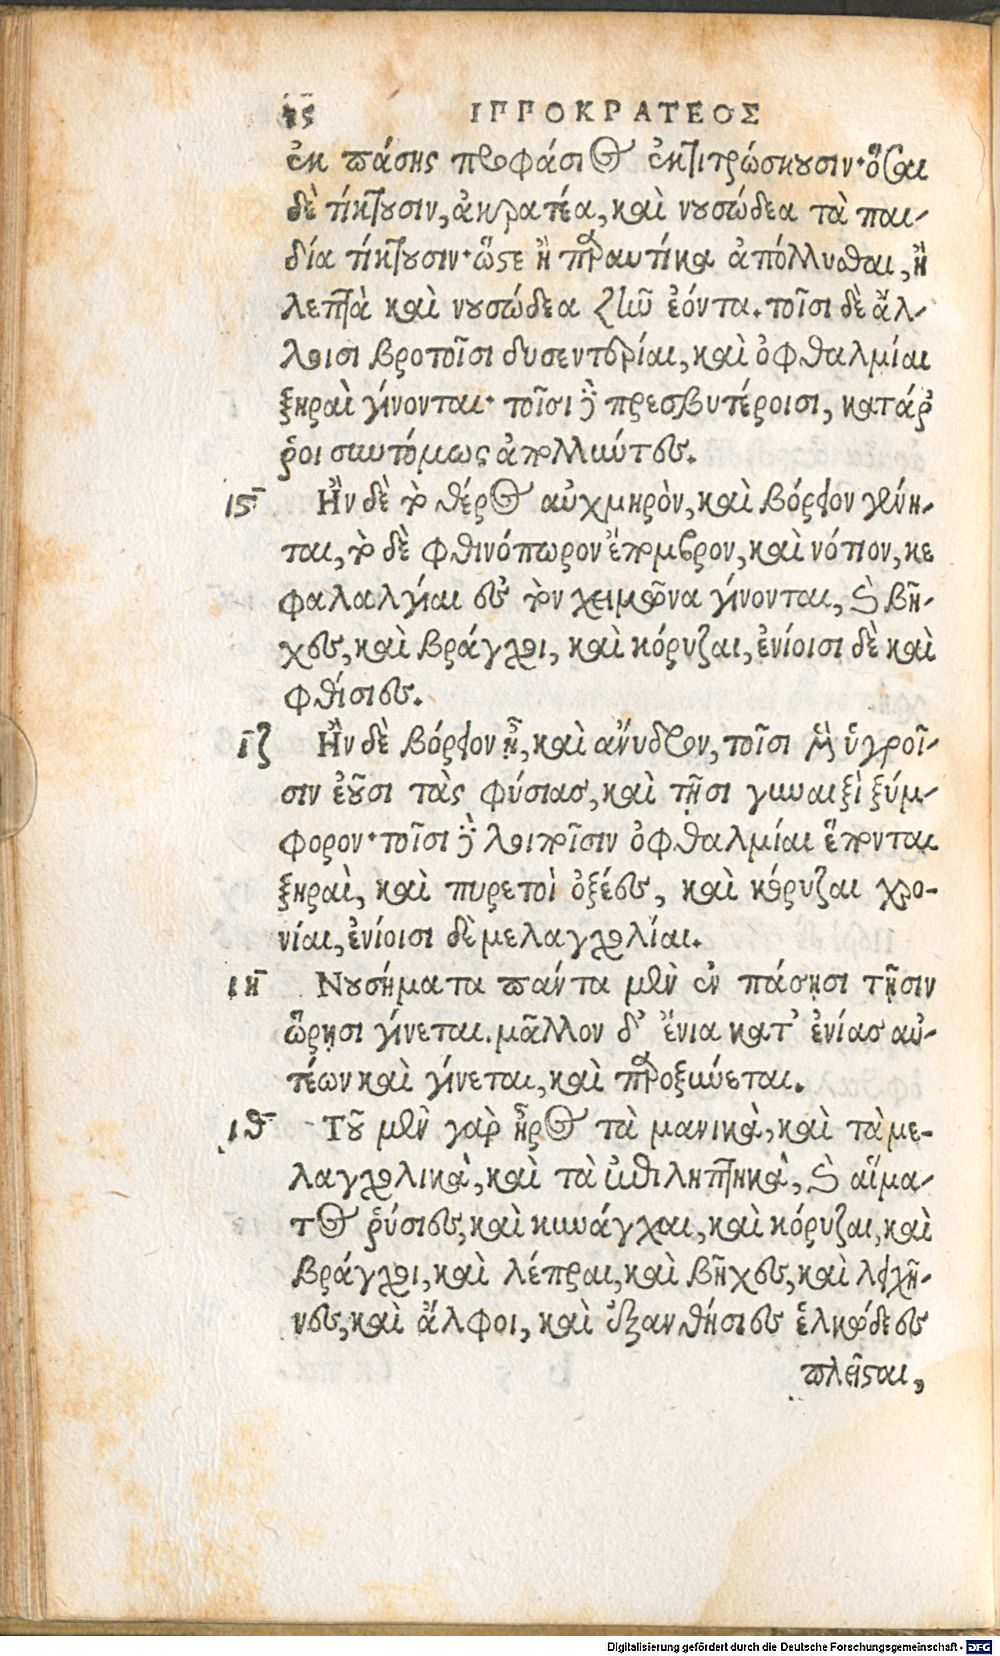 ις ΙΠΠΟΚΡΑΤΕΟΣ
ἐκ πάσης προφάσιος ἐκτιτρώσκουσιν· ὅσαι
δὲ τίκτουσιν, ἀκρατέα, καὶ νουσώδεα τὰ παι-
δία τίκτουσιν· ὥστε ἢ παραυτίκα ἀπόλλυσθαι, ἢ
λεπτὰ καὶ νουσώδεα ζῆν ἐόντα. τοῖσι δὲ ἄλ-
λοισι βροτοῖσι δυσεντερίαι, καὶ ὀφθαλμίαι
ξηραὶ γίνονται· τοῖσι δὲ πρεσβυτέροισι, κατάρ
ῥοι συντόμως ἀπολλύντες.
ιϛ Ἢν δὲ τὸ θέρος αὐχμηρὸν, καὶ βόρειον γένη-
ται, τὸ δὲ φθινόπωρον ἔπομβρον, καὶ νότιον, κε
φαλαλγίαι ἐς τὸν χειμῶνα γίνονται, καὶ βῆ-
χες, καὶ βράγχοι, καὶ κόρυζαι, ἐνίοισι δὲ καὶ
φθίσιες.
ιζ Ἢν δὲ βόρειον ᾖ, καὶ ἄνυδρον, τοῖσι μὲν ὑγροῖ-
σιν ἐοῦσι τὰς φύσιας, καὶ τῇσι γυναιξὶ ξύμ-
φορον· τοῖσι δὲ λοιποῖσιν ὀφθαλμίαι ἔπονται
ξηραὶ, καὶ πυρετοὶ ὀξέες, καὶ κόρυζαι χρο-
νίαι, ἐνίοισι δὲ μελαγχολίαι.
ιη Νουσήματα πάντα μὲν ἐν πάσῃσι τῇσιν
ὥρῃσι γίνεται. μᾶλλον δ' ἔνια κατ' ἐνίας αὐ-
τέων καὶ γίνεται, καὶ παροξύνεται.
ιθ Τοῦ μὲν γὰρ ἦρος τὰ μανικὰ, καὶ τὰ με-
λαγχολικὰ, καὶ τὰ ἐπιληπτικὰ, καὶ αἵμα-
τος ῥύσιες, καὶ κυνάγχαι, καὶ κόρυζαι, καὶ
βράγχοι, καὶ λέπραι, καὶ βῆχες, καὶ λειχῆ-
νες, καὶ ἄλφοι, καὶ ἐξανθήσιες ἑλκώδεες
πλεῖσται,
Digitalisierung gefördert durch die Deutsche Forschungsgemeinschaft - DFG